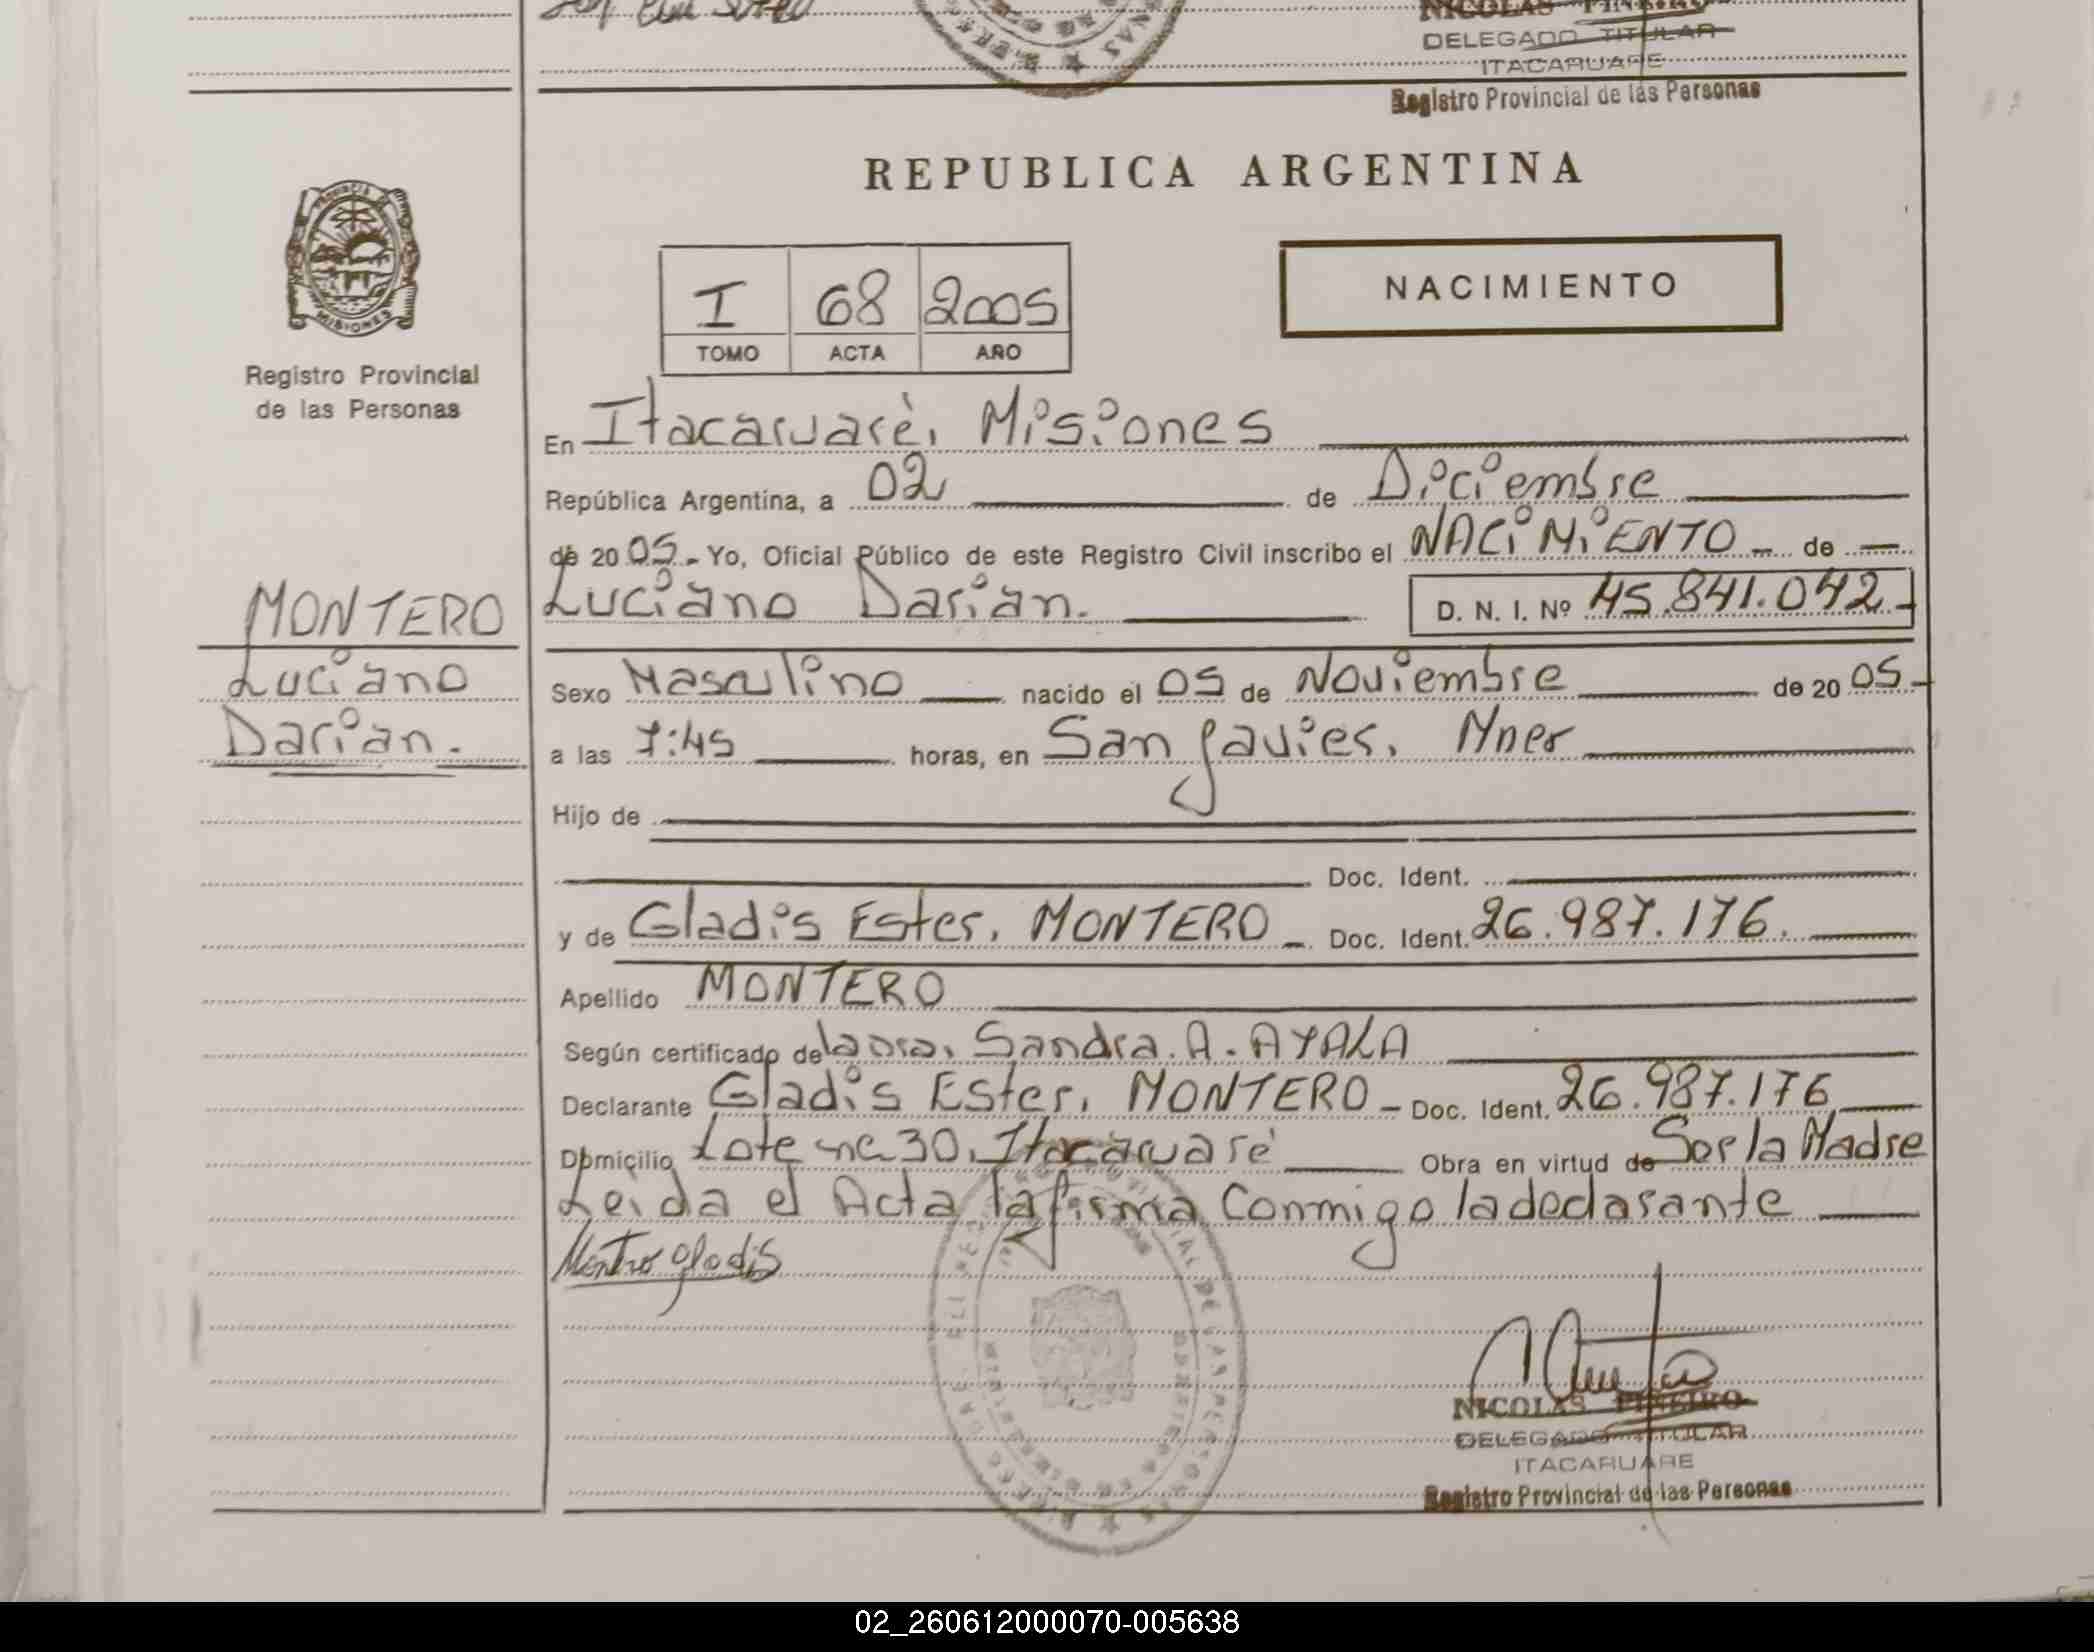 NICOLAS PIÑEIRO
DELEGADO TITULAR
ITACARUARE
Registro Provincial de las Personas
REPUBLICA ARGENTINA
NACIMIENTO
I 68 2005
TOMO ACTA AÑO
PROVINCIA DE
MISIONES
Registro Provincial
de las Personas
En Itacaruaré, Misiones
República Argentina, a 02 de Diciembre
de 2005.- Yo, Oficial Público de este Registro Civil inscribo el NACIMIENTO - de -
Luciano Darian. D. N. I. Nº 45.841.042-
MONTERO
Luciano
Darian.
Sexo Masculino nacido el 05 de Noviembre de 2005-
a las 7:45 horas, en San Javier, Mnes
Hijo de
Doc. Ident.
y de Gladis Ester, MONTERO - Doc. Ident. 26.987.176.
Apellido MONTERO
Según certificado de la Dra, Sandra. A. AYALA
Declarante Gladis Ester, MONTERO - Doc. Ident. 26.987.176
Domicilio Lote nº 30, Itacaruaré Obra en virtud de Ser la Madre
Leida el Acta la firma Conmigo la declarante
Montero Gladis
NICOLAS PIÑEIRO
DELEGADO TITULAR
ITACARUARE
Registro Provincial de las Personas
02_260612000070-005638